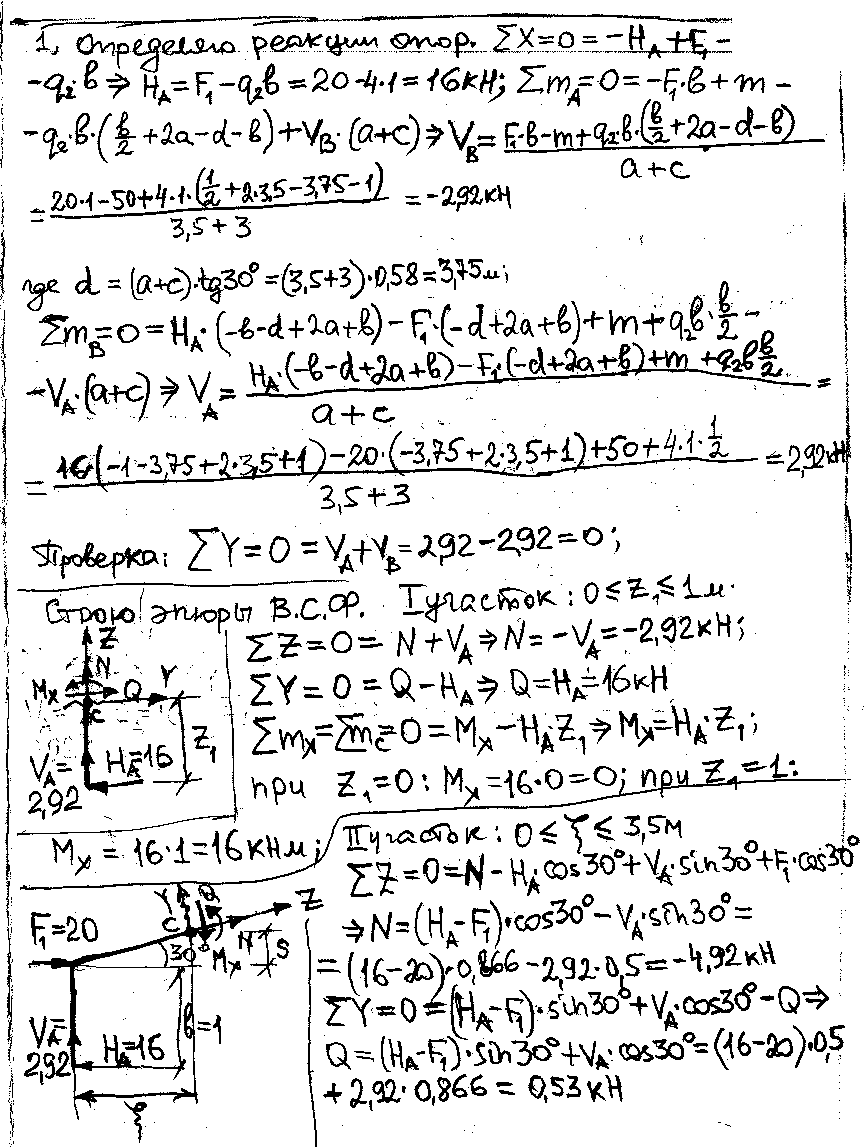 1, Определяю реакции опор. ΣX=0=-H_A+F₁-
-q₂·в ⇒ H_A=F₁-q₂в=20-4·1=16кН; Σm_A=0=-F₁·в+m-
-q₂·в·(в/2+2a-d-в)+V_B·(a+c) ⇒ V_B=(F₁·в-m+q₂в·(в/2+2a-d-в))/(a+c)
=(20·1-50+4·1·(1/2+2·3,5-3,75-1))/(3,5+3)=-2,92кН
где d=(a+c)·tg30°=(3,5+3)·0,58=3,75м;
Σm_B=0=H_A·(-в-d+2a+в)-F₁·(-d+2a+в)+m+q₂в·в/2-
-V_A·(a+c) ⇒ V_A=(H_A·(-в-d+2a+в)-F₁·(-d+2a+в)+m+q₂в·в/2)/(a+c)=
=(16(-1-3,75+2·3,5+1)-20·(-3,75+2·3,5+1)+50+4·1·1/2)/(3,5+3)=2,92кН
Проверка: ΣY=0=V_A+V_B=2,92-2,92=0;
Строю эпюры В.С.Ф. I участок: 0≤Z₁≤1м.
ΣZ=0=N+V_A ⇒ N=-V_A=-2,92кН;
ΣY=0=Q-H_A ⇒ Q=H_A=16кН
Σm_x=Σm_c=0=M_x-H_A·Z₁ ⇒ M_x=H_A·Z₁;
при Z₁=0: M_x=16·0=0; при Z₁=1:
Z
N
Y
M_x
Q
C
Z₁
V_A=
2,92
H_A=16
M_x=16·1=16кНм;
II участок: 0≤ξ≤3,5м
ΣZ=0=N-H_A·cos30°+V_A·sin30°+F₁·cos30°
⇒ N=(H_A-F₁)·cos30°-V_A·sin30°=
=(16-20)·0,866-2,92·0,5=-4,92кН
ΣY=0=(H_A-F₁)·sin30°+V_A·cos30°-Q ⇒
Q=(H_A-F₁)·sin30°+V_A·cos30°=(16-20)·0,5
+2,92·0,866=0,53кН
Y
Q
Z
C
F₁=20
30°
M_x
N
S
V_A=
2,92
H_A=16
в=1
ξ